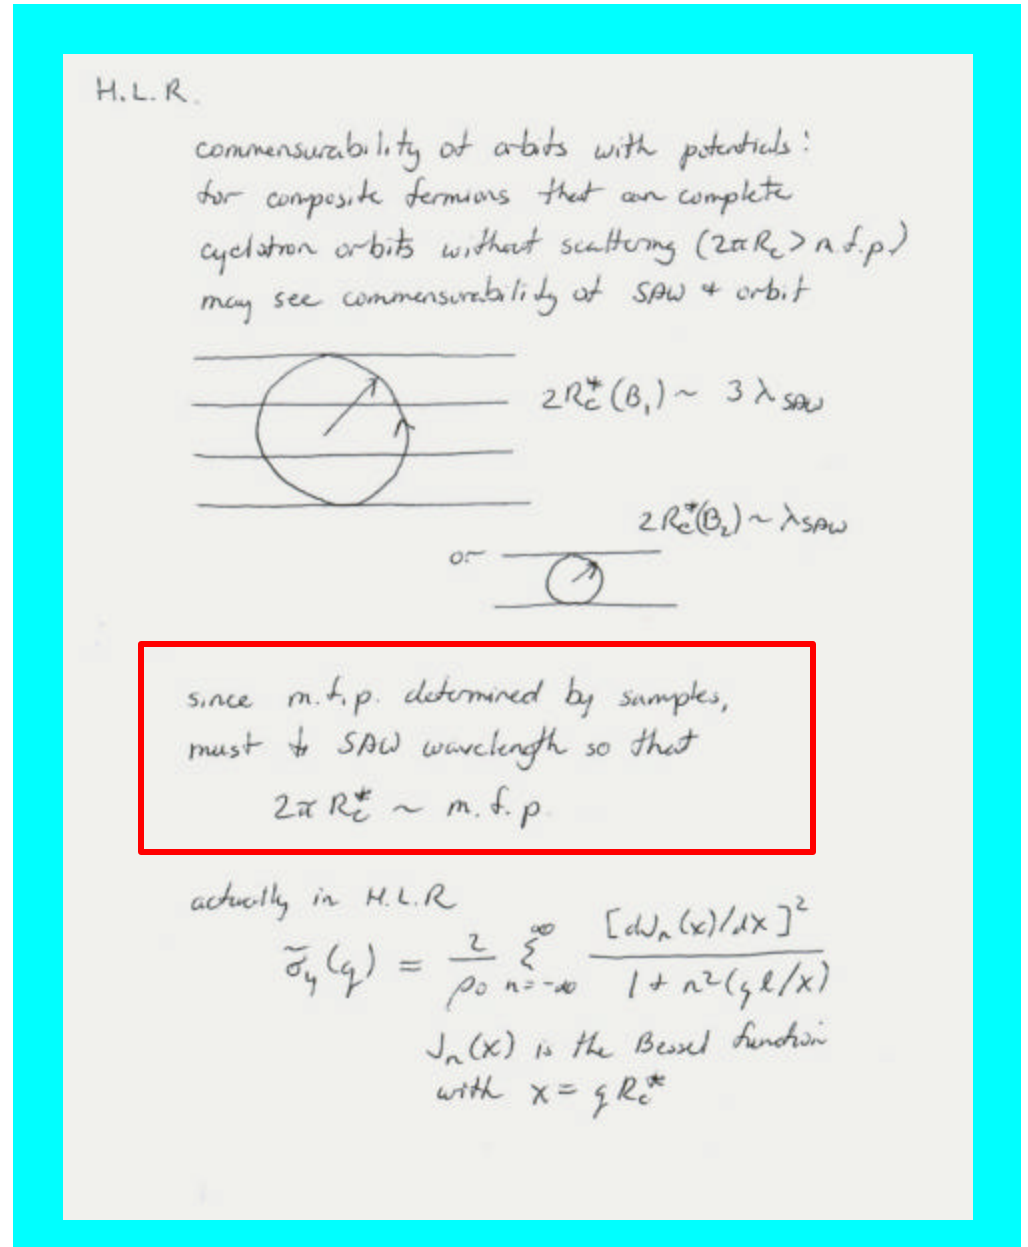 H.L.R.
commensurability of orbits with potentials:
for composite fermions that can complete
cyclotron orbits without scattering (2πR_c > m.f.p.)
may see commensurability of SAW + orbit
2R_c^*(B_1) ~ 3 λ_SAW
2R_c^*(B_2) ~ λ_SAW
or
since m.f.p. determined by samples,
must ↓ SAW wavelength so that
2π R_c^* ~ m.f.p.
actually in H.L.R
σ̃_y(q) = 2/ρ_0 Σ_{n=-∞}^{∞} [dJ_n(x)/dx]^2 / 1 + n^2(ql/x)
J_n(x) is the Bessel function
with x = q R_c^*